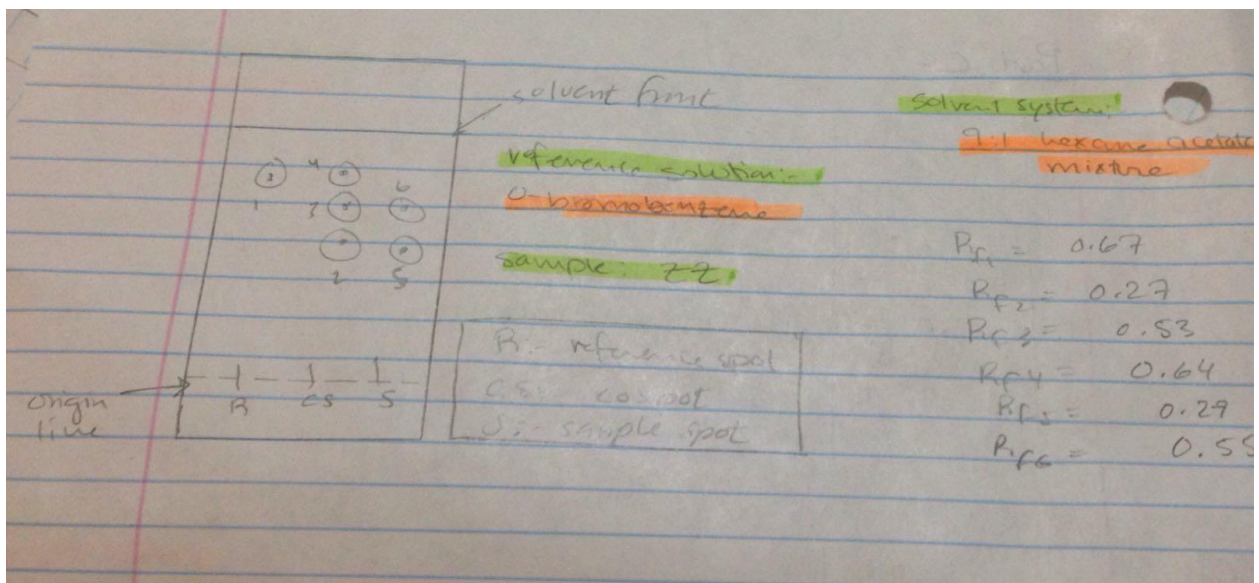 solvent front
4
6
1
3
2
5
R CS S
origin
line
reference solution:-
o-bromobenzene
sample: ZZ
R:- reference spot
CS:- cospot
S:- sample spot
solvent system:
9:1 hexane acetate
mixture
Rf1 = 0.67
Rf2 = 0.27
Rf3 = 0.53
Rf4 = 0.64
Rf5 = 0.29
Rf6 = 0.55